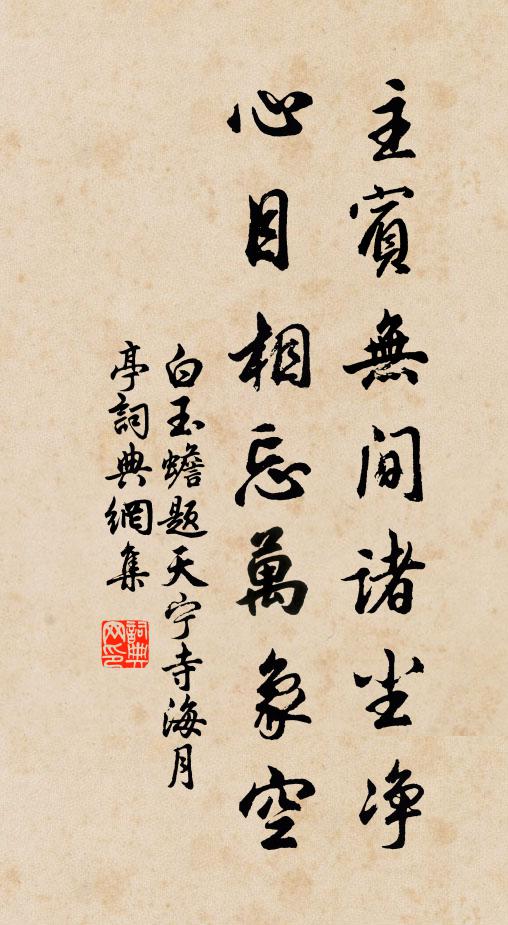 主賓無間諸尘净
心目相忘萬象空
白玉蟾题天宁寺海月
亭詞典網集
詞典
网印